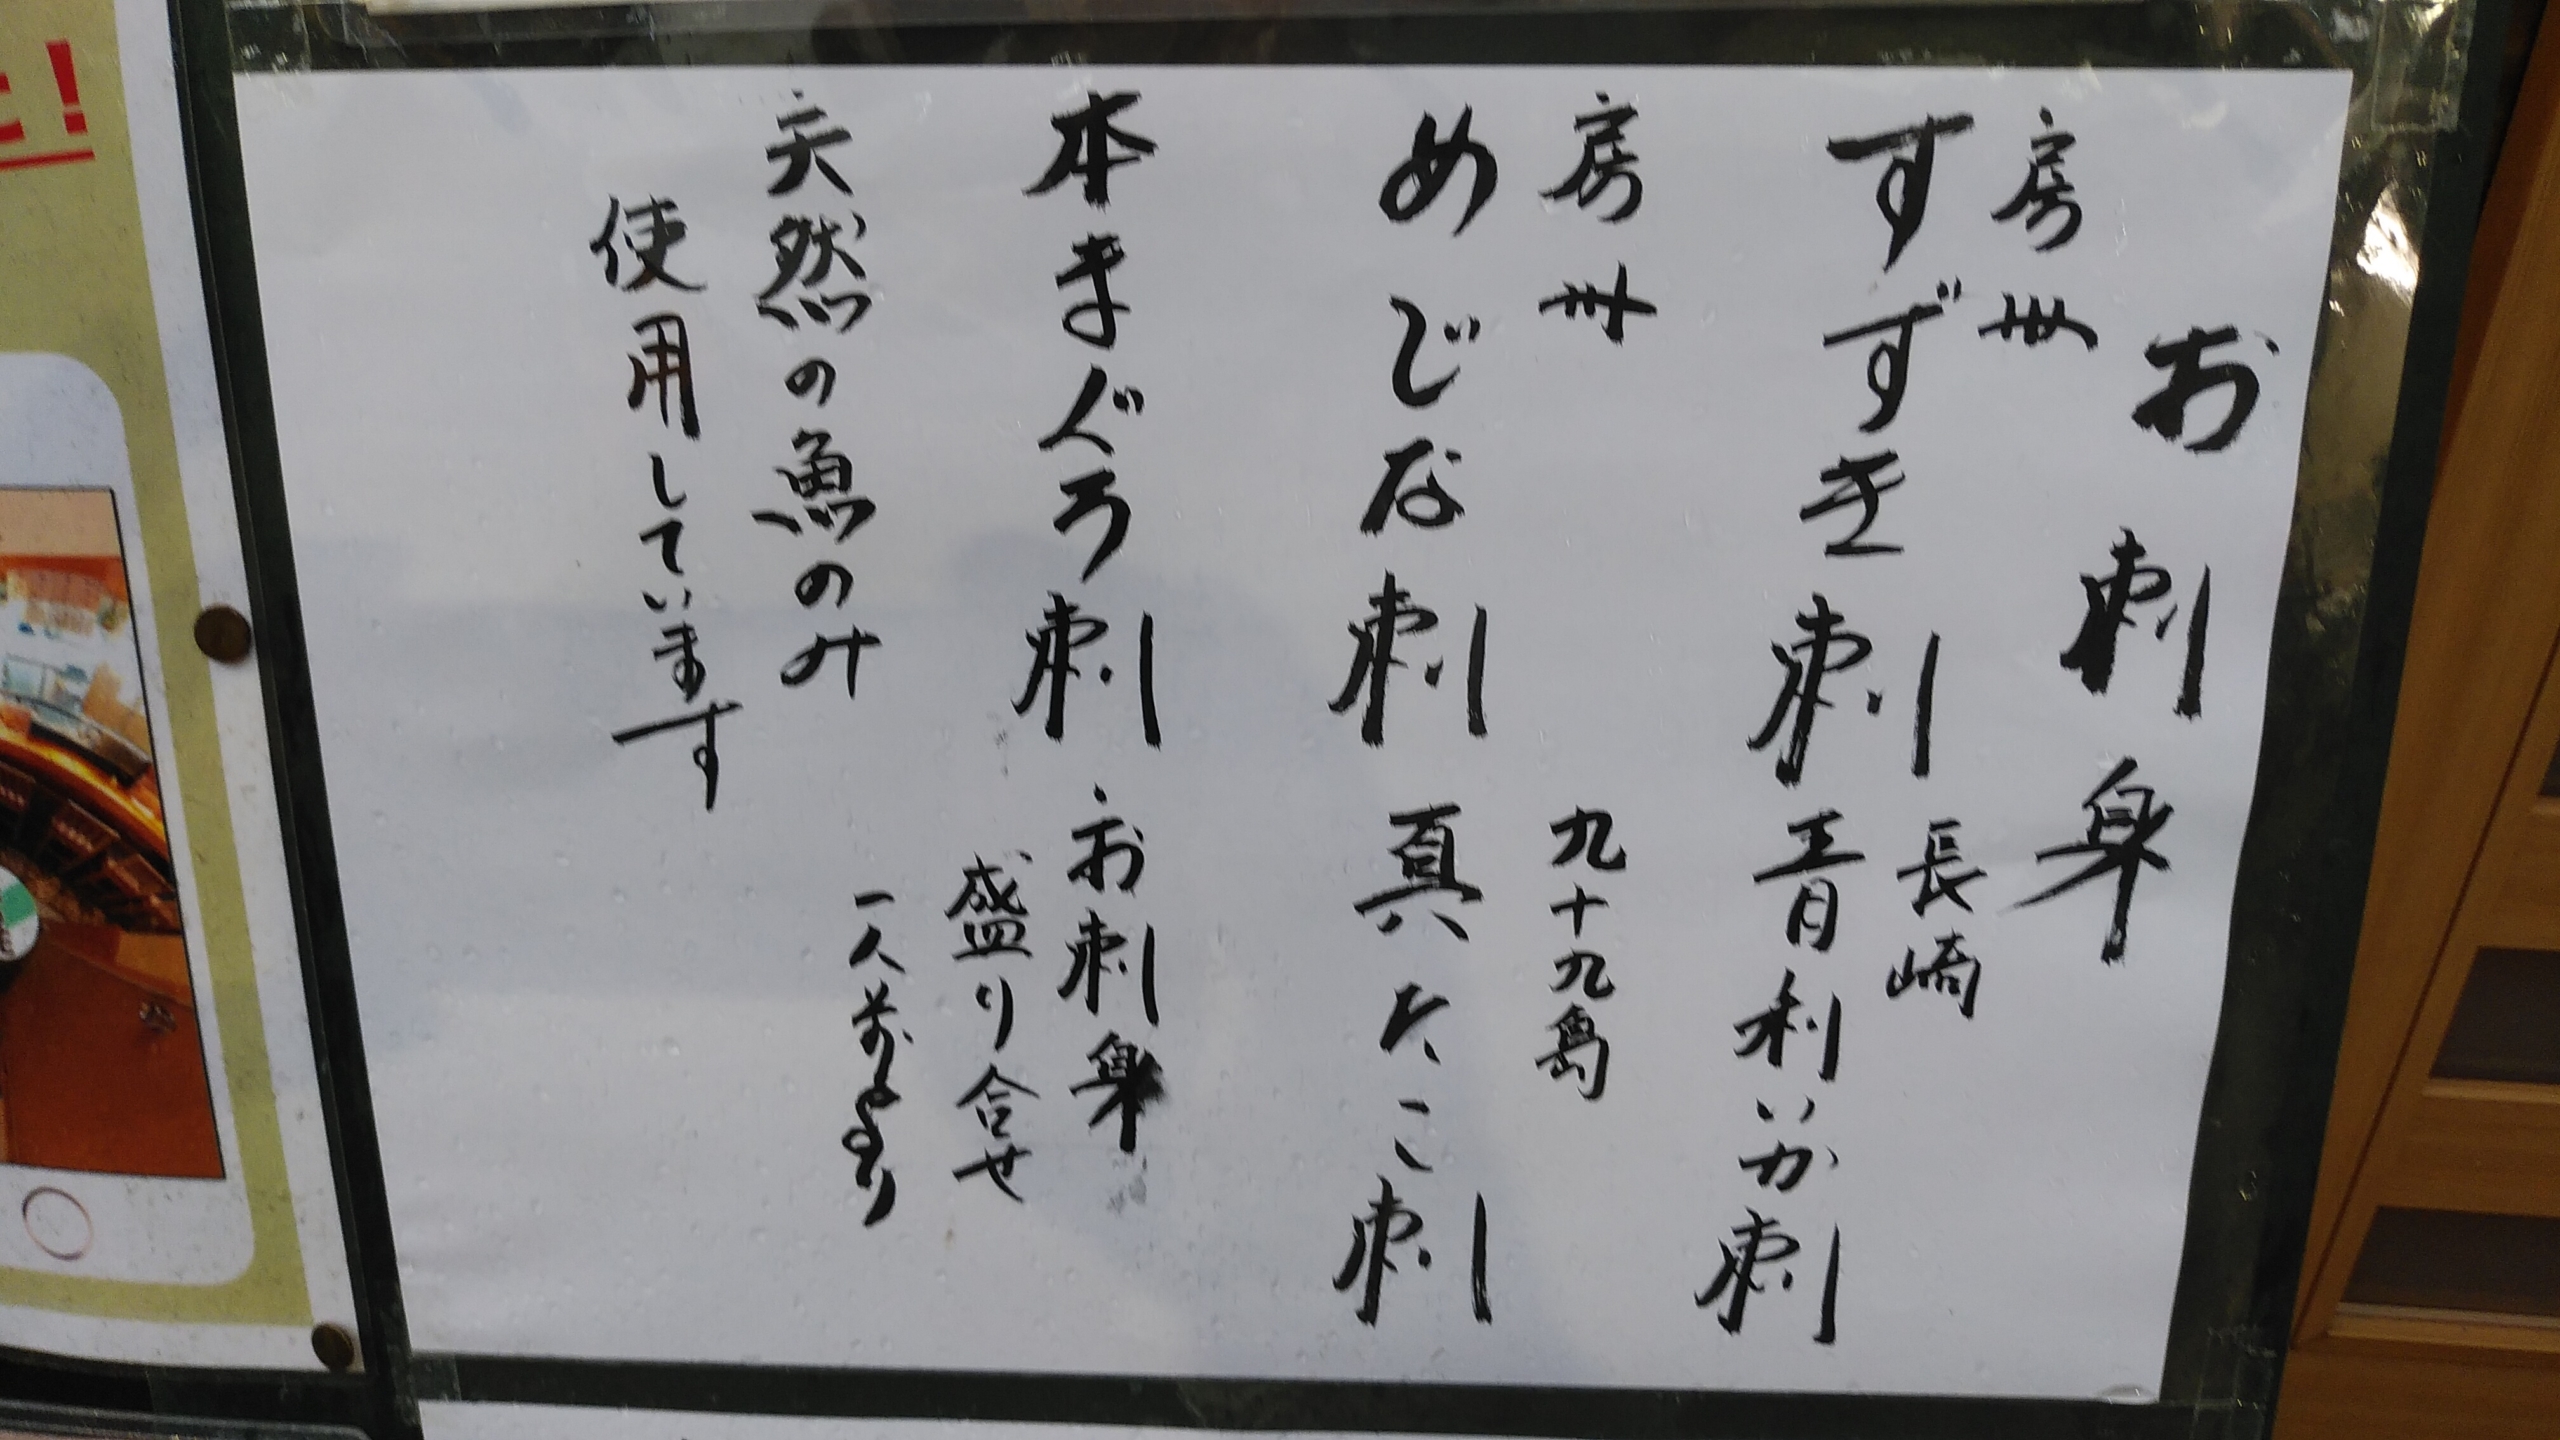 お刺身
房州
すずき刺
長崎
青利いか刺
房州
めじな刺
九十九島
真たこ刺
本まぐろ刺
お刺身
盛り合せ
一人前より
天然の魚のみ
使用しています
！